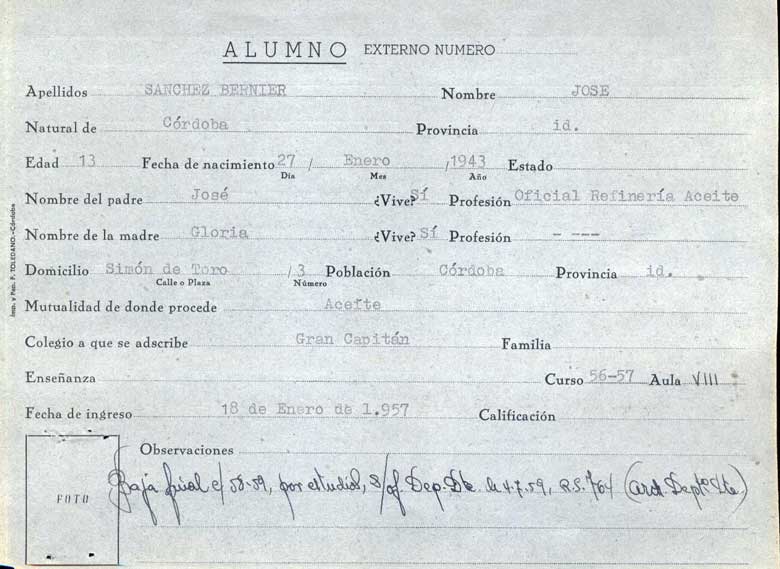 ALUMNO EXTERNO NUMERO
Apellidos SANCHEZ BERNIER Nombre JOSE
Natural de Córdoba Provincia id.
Edad 13 Fecha de nacimiento 27 / Enero / 1943 Estado
Día Mes Año
Nombre del padre José ¿Vive? Sí Profesión Oficial Refinería Aceite
Nombre de la madre Gloria ¿Vive? Sí Profesión - ---
Domicilio Simón de Toro / 3 Población Córdoba Provincia id.
Calle o Plaza Número
Mutualidad de donde procede Aceite
Colegio a que se adscribe Gran Capitán Familia
Enseñanza Curso 56-57 Aula VIII
Fecha de ingreso 18 de Enero de 1.957 Calificación
Observaciones
Baja final c/ 58-59, por estudios, s/ of. Dep. Dte. de 4-7-59, R.S. 764 (arch. Deptº Dte.)
FOTO
Imp. y Pap. F. TOLEDANO.-Córdoba